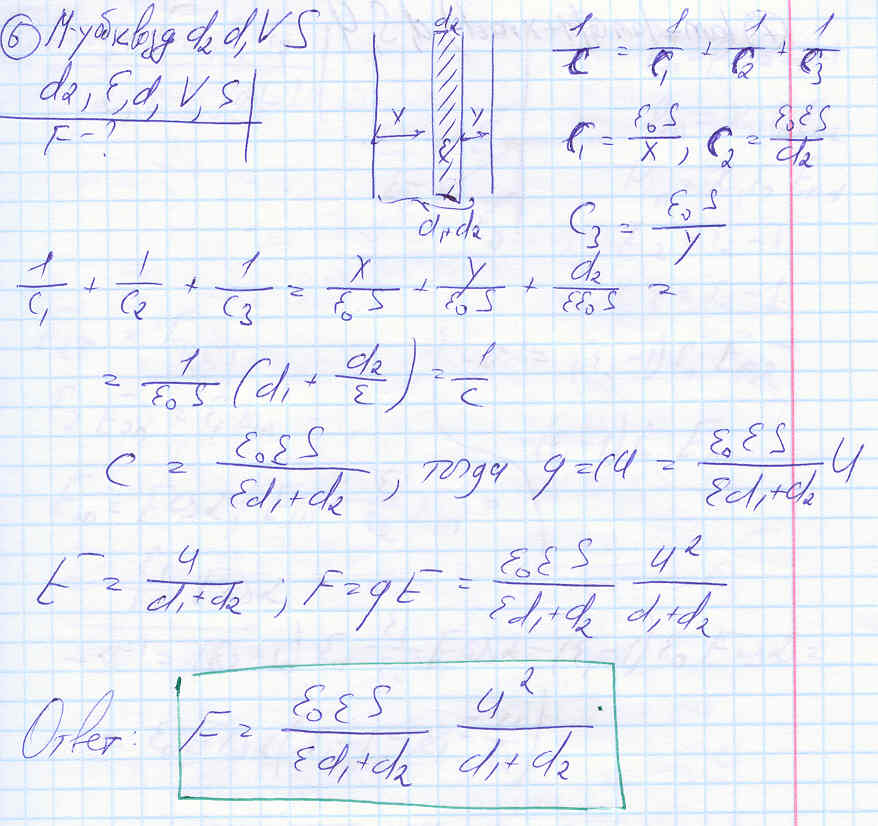 ⑥ d₂ d₁ V S
d₂, ε, d, V, S
F - ?
d₂
x
y
ε
d₁+d₂
1/C = 1/C₁ + 1/C₂ + 1/C₃
C₁ = ε₀S/x, C₂ = ε₀εS/d₂
C₃ = ε₀S/y
1/C₁ + 1/C₂ + 1/C₃ = x/ε₀S + y/ε₀S + d₂/εε₀S =
= 1/ε₀S (d₁ + d₂/ε) = 1/C
C = ε₀εS/εd₁+d₂, тогда q = CU = ε₀εS/εd₁+d₂ U
E = U/d₁+d₂ ; F = qE = ε₀εS/εd₁+d₂ U²/d₁+d₂
Ответ: F = ε₀εS/εd₁+d₂ U²/d₁+d₂